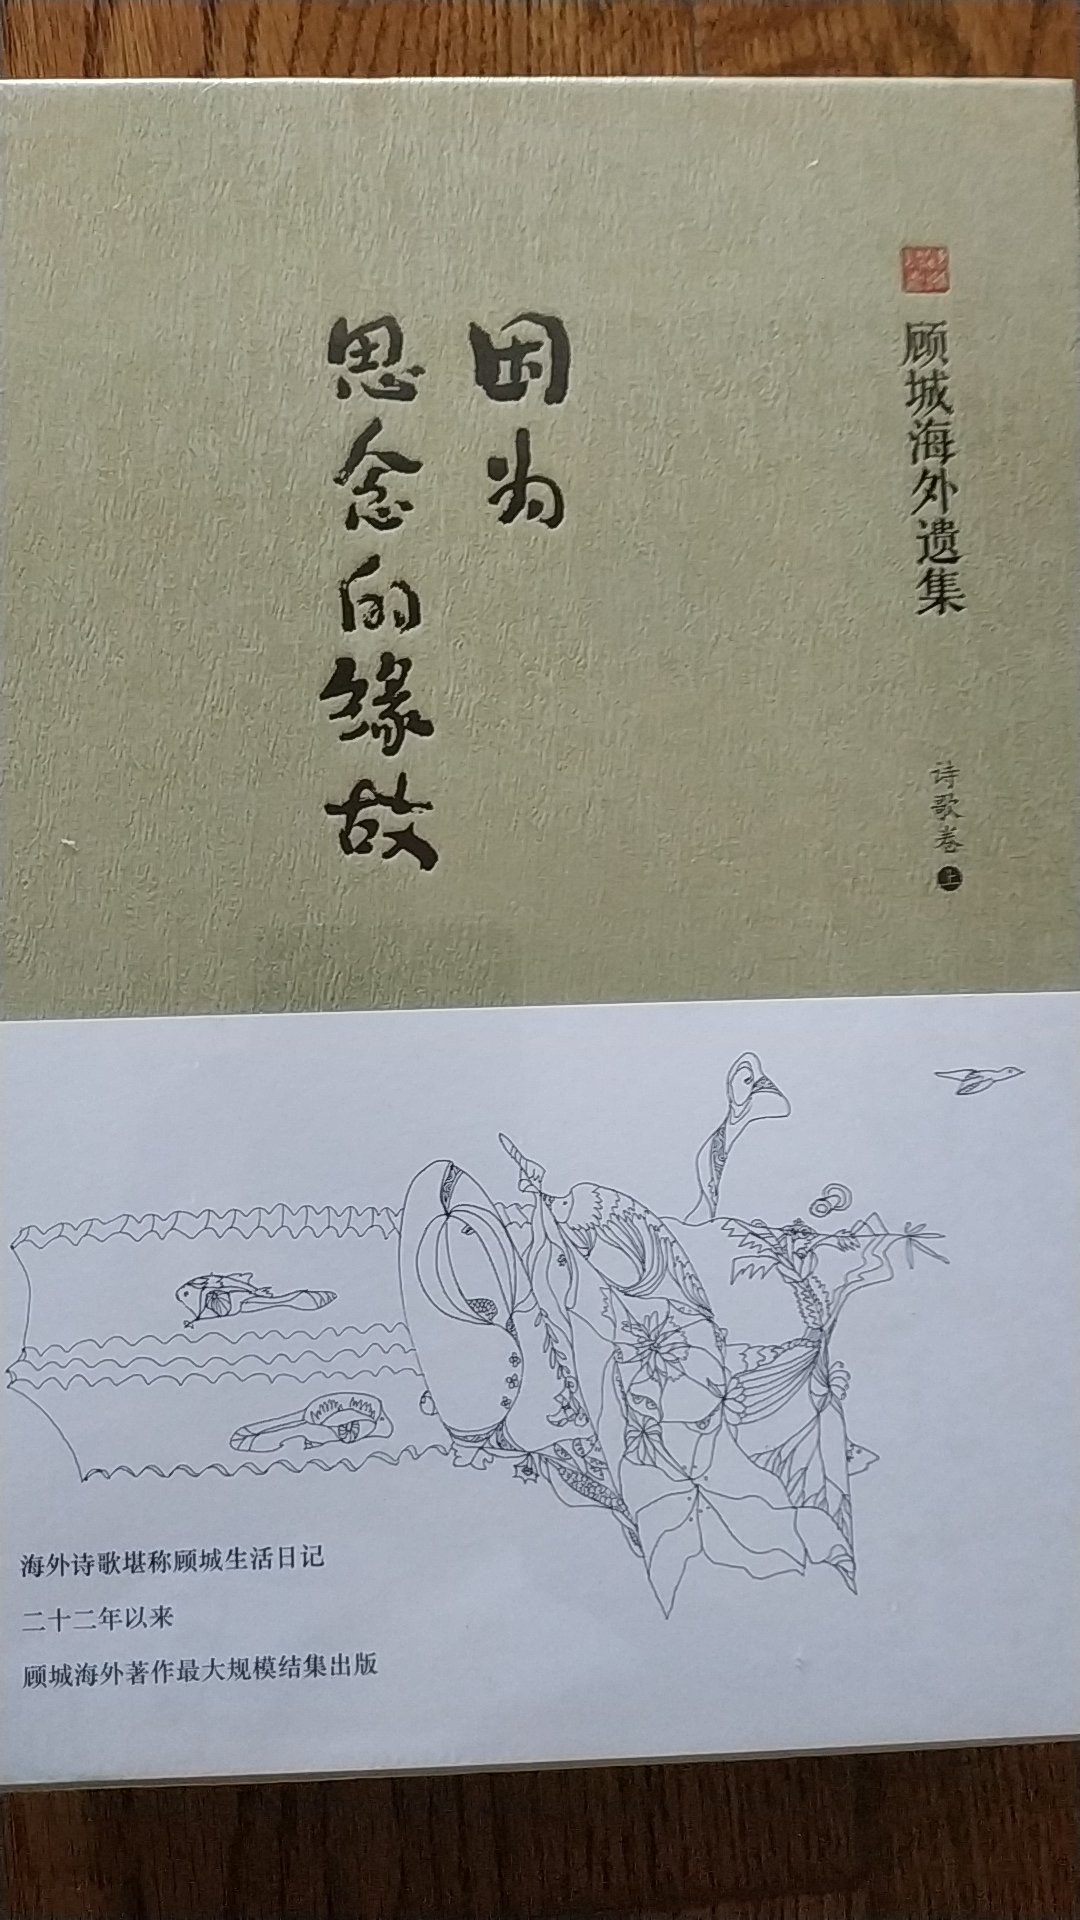 顾城海外遗集
诗歌卷 上
因为
思念的缘故
海外诗歌堪称顾城生活日记
二十二年以来
顾城海外著作最大规模结集出版